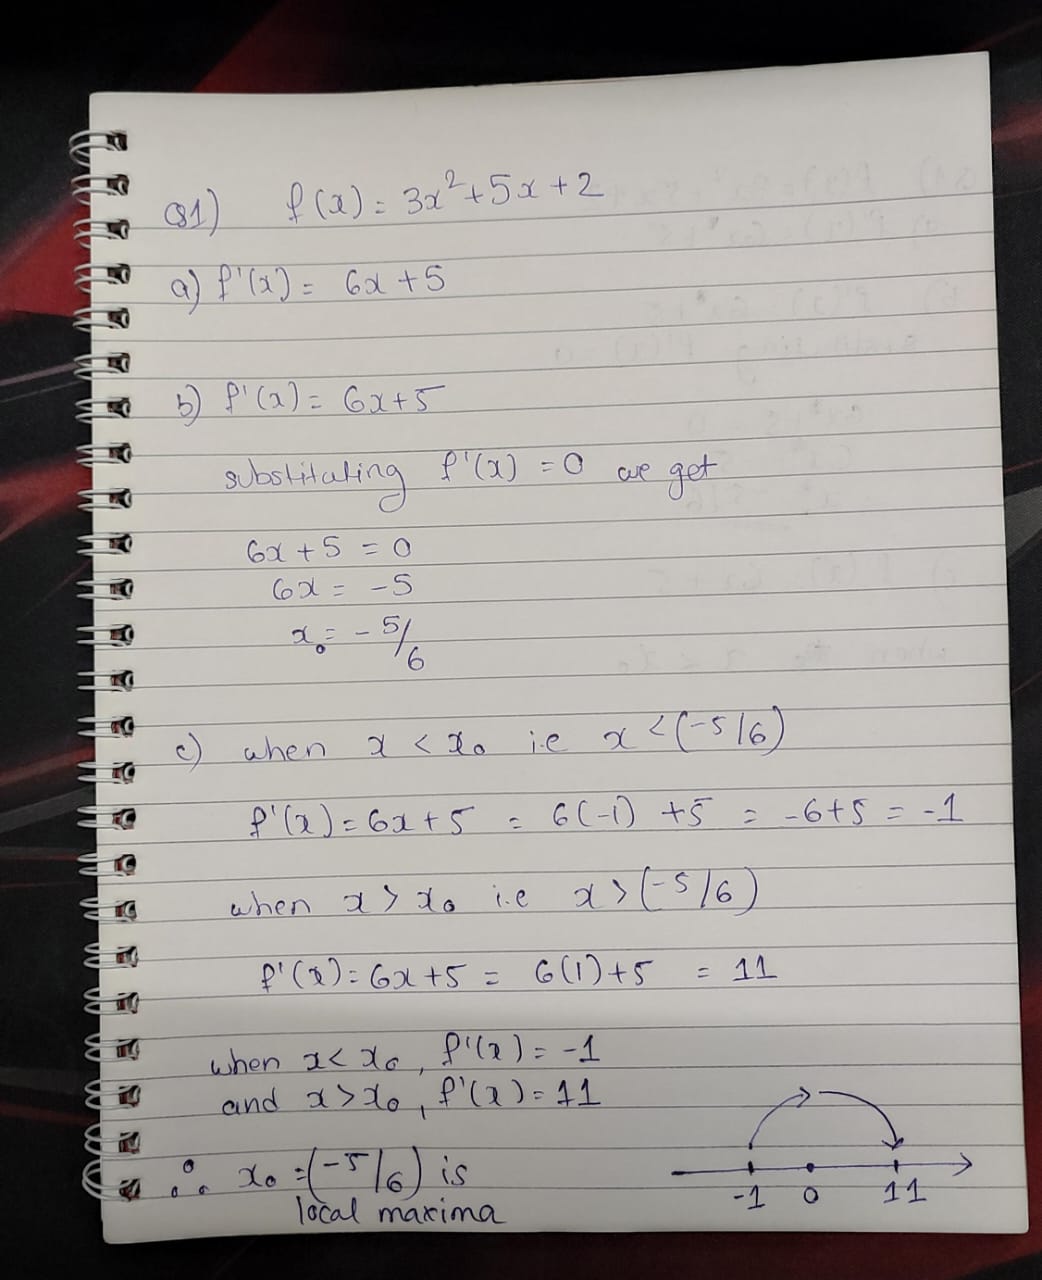 Q1) f(x) = 3x²+5x+2
a) f'(x) = 6x+5
b) f'(x) = 6x+5
substituting f'(x) = 0 we get
6x+5 = 0
6x = -5
x₀ = -5/6
c) when x < x₀ i.e x < (-5/6)
f'(x) = 6x+5 = 6(-1) +5 = -6+5 = -1
when x > x₀ i.e x > (-5/6)
f'(x) = 6x+5 = 6(1)+5 = 11
when x < x₀, f'(x) = -1
and x > x₀, f'(x) = 11
∴ x₀ = (-5/6) is
local maxima
-1 0 11